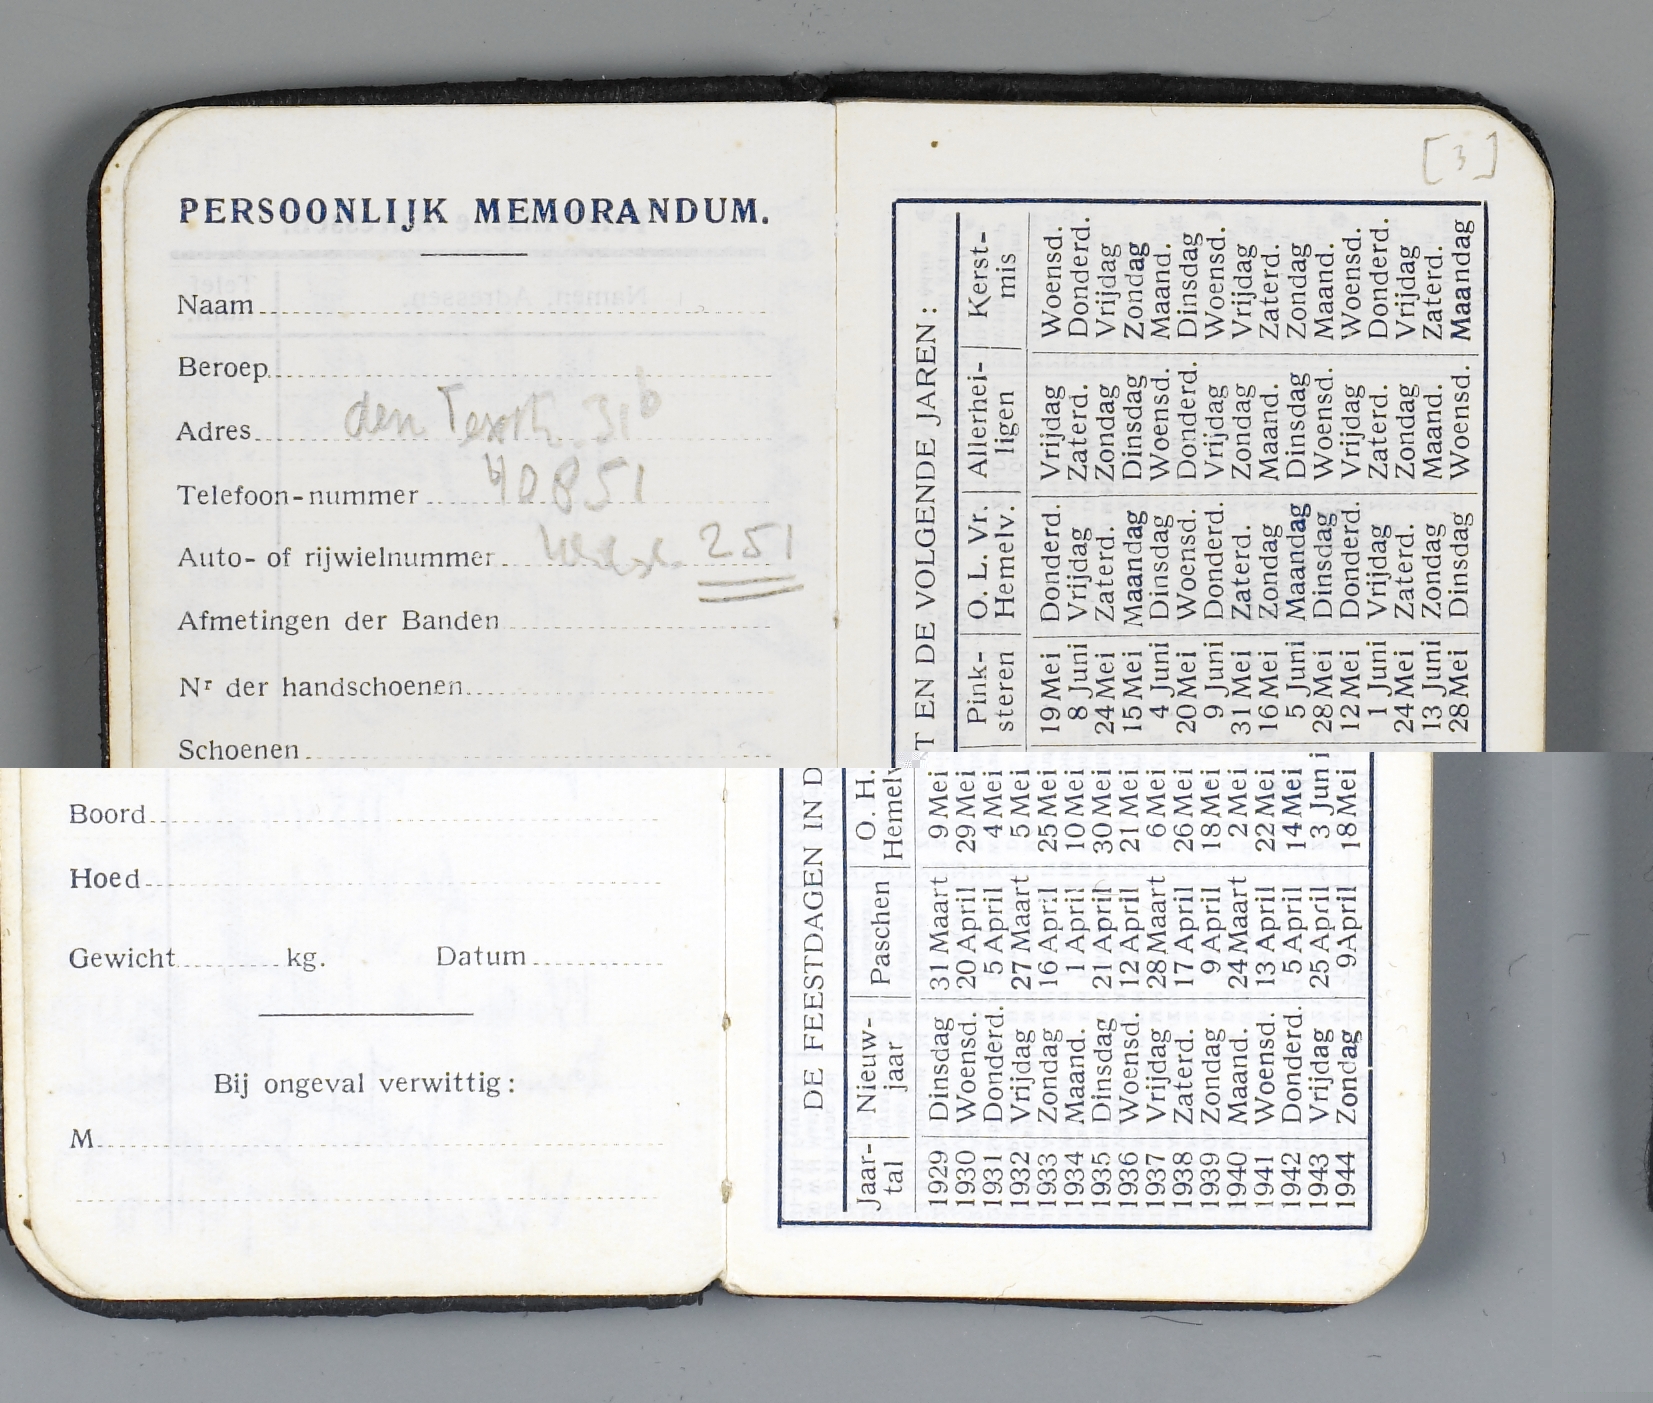 PERSOONLIJK MEMORANDUM.
Naam
Beroep
Adres den Texstr. 31b
Telefoon-nummer 40851
Auto- of rijwielnummer 251
Afmetingen der Banden
Nr der handschoenen
Schoenen
Boord
Hoed
Gewicht kg. Datum
Bij ongeval verwittig:
M
[3]
DE FEESTDAGEN IN D T EN DE VOLGENDE JAREN:
Jaar- Nieuw- Paschen O. H. Pink- O. L. Vr. Allerhei- Kerst-
tal jaar Hemelv steren Hemelv. ligen mis
1929 Dinsdag 31 Maart 9 Mei 19 Mei Donderd. Vrijdag Woensd.
1930 Woensd. 20 April 29 Mei 8 Juni Vrijdag Zaterd. Donderd.
1931 Donderd. 5 April 4 Mei 24 Mei Zaterd. Zondag Vrijdag
1932 Vrijdag 27 Maart 5 Mei 15 Mei Maandag Dinsdag Zondag
1933 Zondag 16 April 25 Mei 4 Juni Dinsdag Woensd. Maand.
1934 Maand. 1 April 10 Mei 20 Mei Woensd. Donderd. Dinsdag
1935 Dinsdag 21 April 30 Mei 9 Juni Donderd. Vrijdag Woensd.
1936 Woensd. 12 April 21 Mei 31 Mei Zaterd. Zondag Vrijdag
1937 Vrijdag 28 Maart 6 Mei 16 Mei Zondag Maand. Zaterd.
1938 Zaterd. 17 April 26 Mei 5 Juni Maandag Dinsdag Zondag
1939 Zondag 9 April 18 Mei 28 Mei Dinsdag Woensd. Maand.
1940 Maand. 24 Maart 2 Mei 12 Mei Donderd. Vrijdag Woensd.
1941 Woensd. 13 April 22 Mei 1 Juni Vrijdag Zaterd. Donderd.
1942 Donderd. 5 April 14 Mei 24 Mei Zaterd. Zondag Vrijdag
1943 Vrijdag 25 April 3 Juni 13 Juni Zondag Maand. Zaterd.
1944 Zondag 9 April 18 Mei 28 Mei Dinsdag Woensd. Maandag